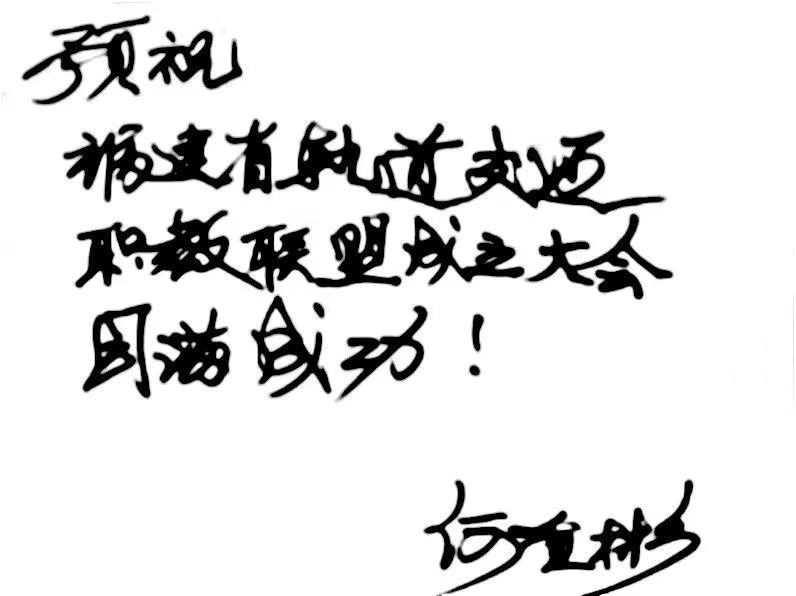 预祝
福建省轨道交通
职教联盟成立大会
圆满成功！
何重彬